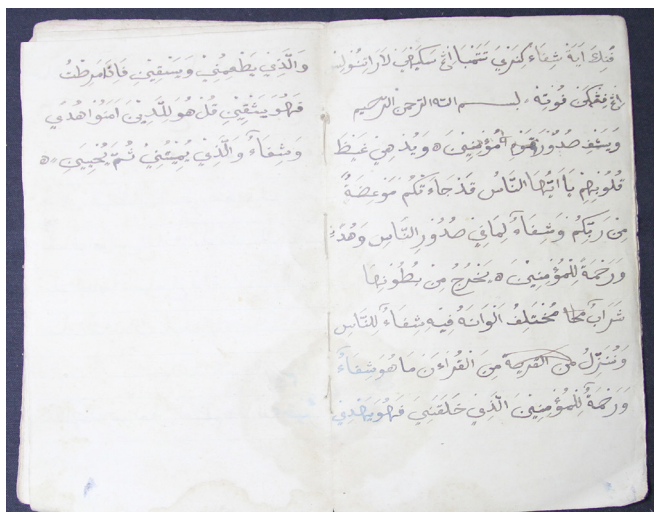 اَيَةْ شِفَاءْ
فُوتِهْ بسم الله الرحمن الرحيم
وَيَشْفِ صُدُوْرَ قَوْمٍ مُؤْمِنِيْنَ ه وَيُذْهِنْ غَيْظَ
قُلُوْبِهِمْ يَا اَيُّهَا النَّاسُ قَدْ جَاءَتْكُمْ مَوْعِضَةٌ
مِنْ رَبِّكُمْ وَشِفَاءٌ لِمَا فِيْ صُدُوْرِ النَّاسِ وَهُدًى
وَرَحْمَةٌ لِلْمُؤْمِنِيْنَ ه يَخْرُجُ مِنْ بُطُوْنِهَا
شَرَابٌ مُخْتَلِفٌ اَلْوَانُهُ فِيْهِ شِفَاءٌ لِلنَّاسِ
وَنُنَزِّلُ مِنَ الْقُرْءَنِ مَا هُوَ شِفَاءٌ
وَرَحْمَةٌ لِلْمُؤْمِنِيْنَ الَّذِيْ خَلَقَنِيْ فَهُوَ يَهْدِنِيْ
وَالَّذِيْ يَطْعِمُنِيْ وَيَسْقِيْنِ فَاِذَا مَرِظْتُ
فَهُوَ يَشْقِيْنِ قُلْ هُوَ لِلَّذِيْنَ اٰمَنُوْا هُدًى
وَشِفَاءٌ وَالَّذِيْ يُمِيْتُنِيْ ثُمَّ يُحْيِيْنِ ه